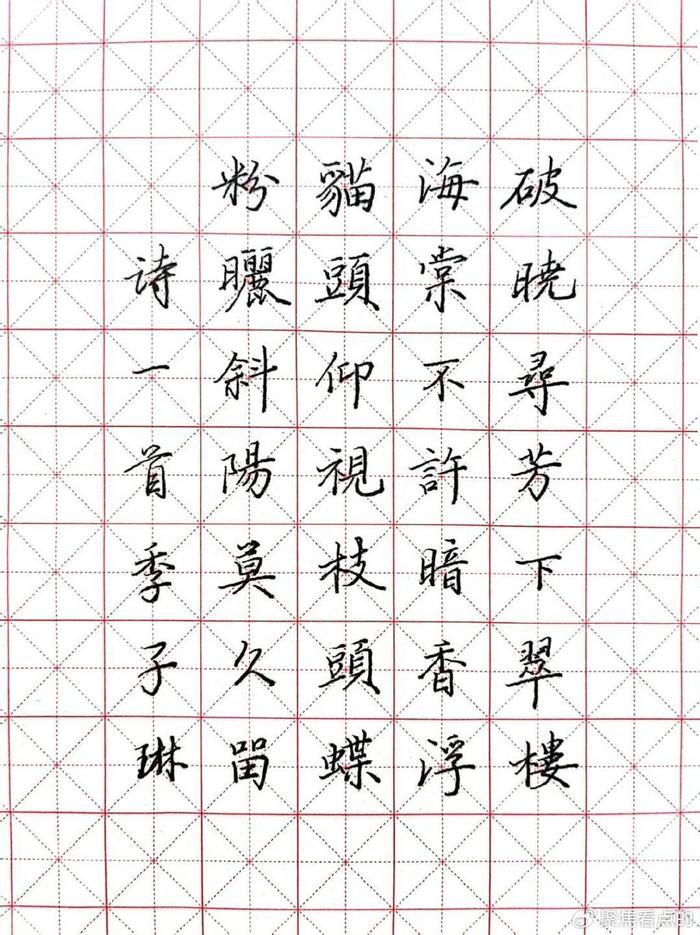 破曉尋芳下翠樓
海棠不許暗香浮
貓頭仰視枝頭蝶
粉曬斜陽莫久畱
诗一首季子琳
聚焦看点的